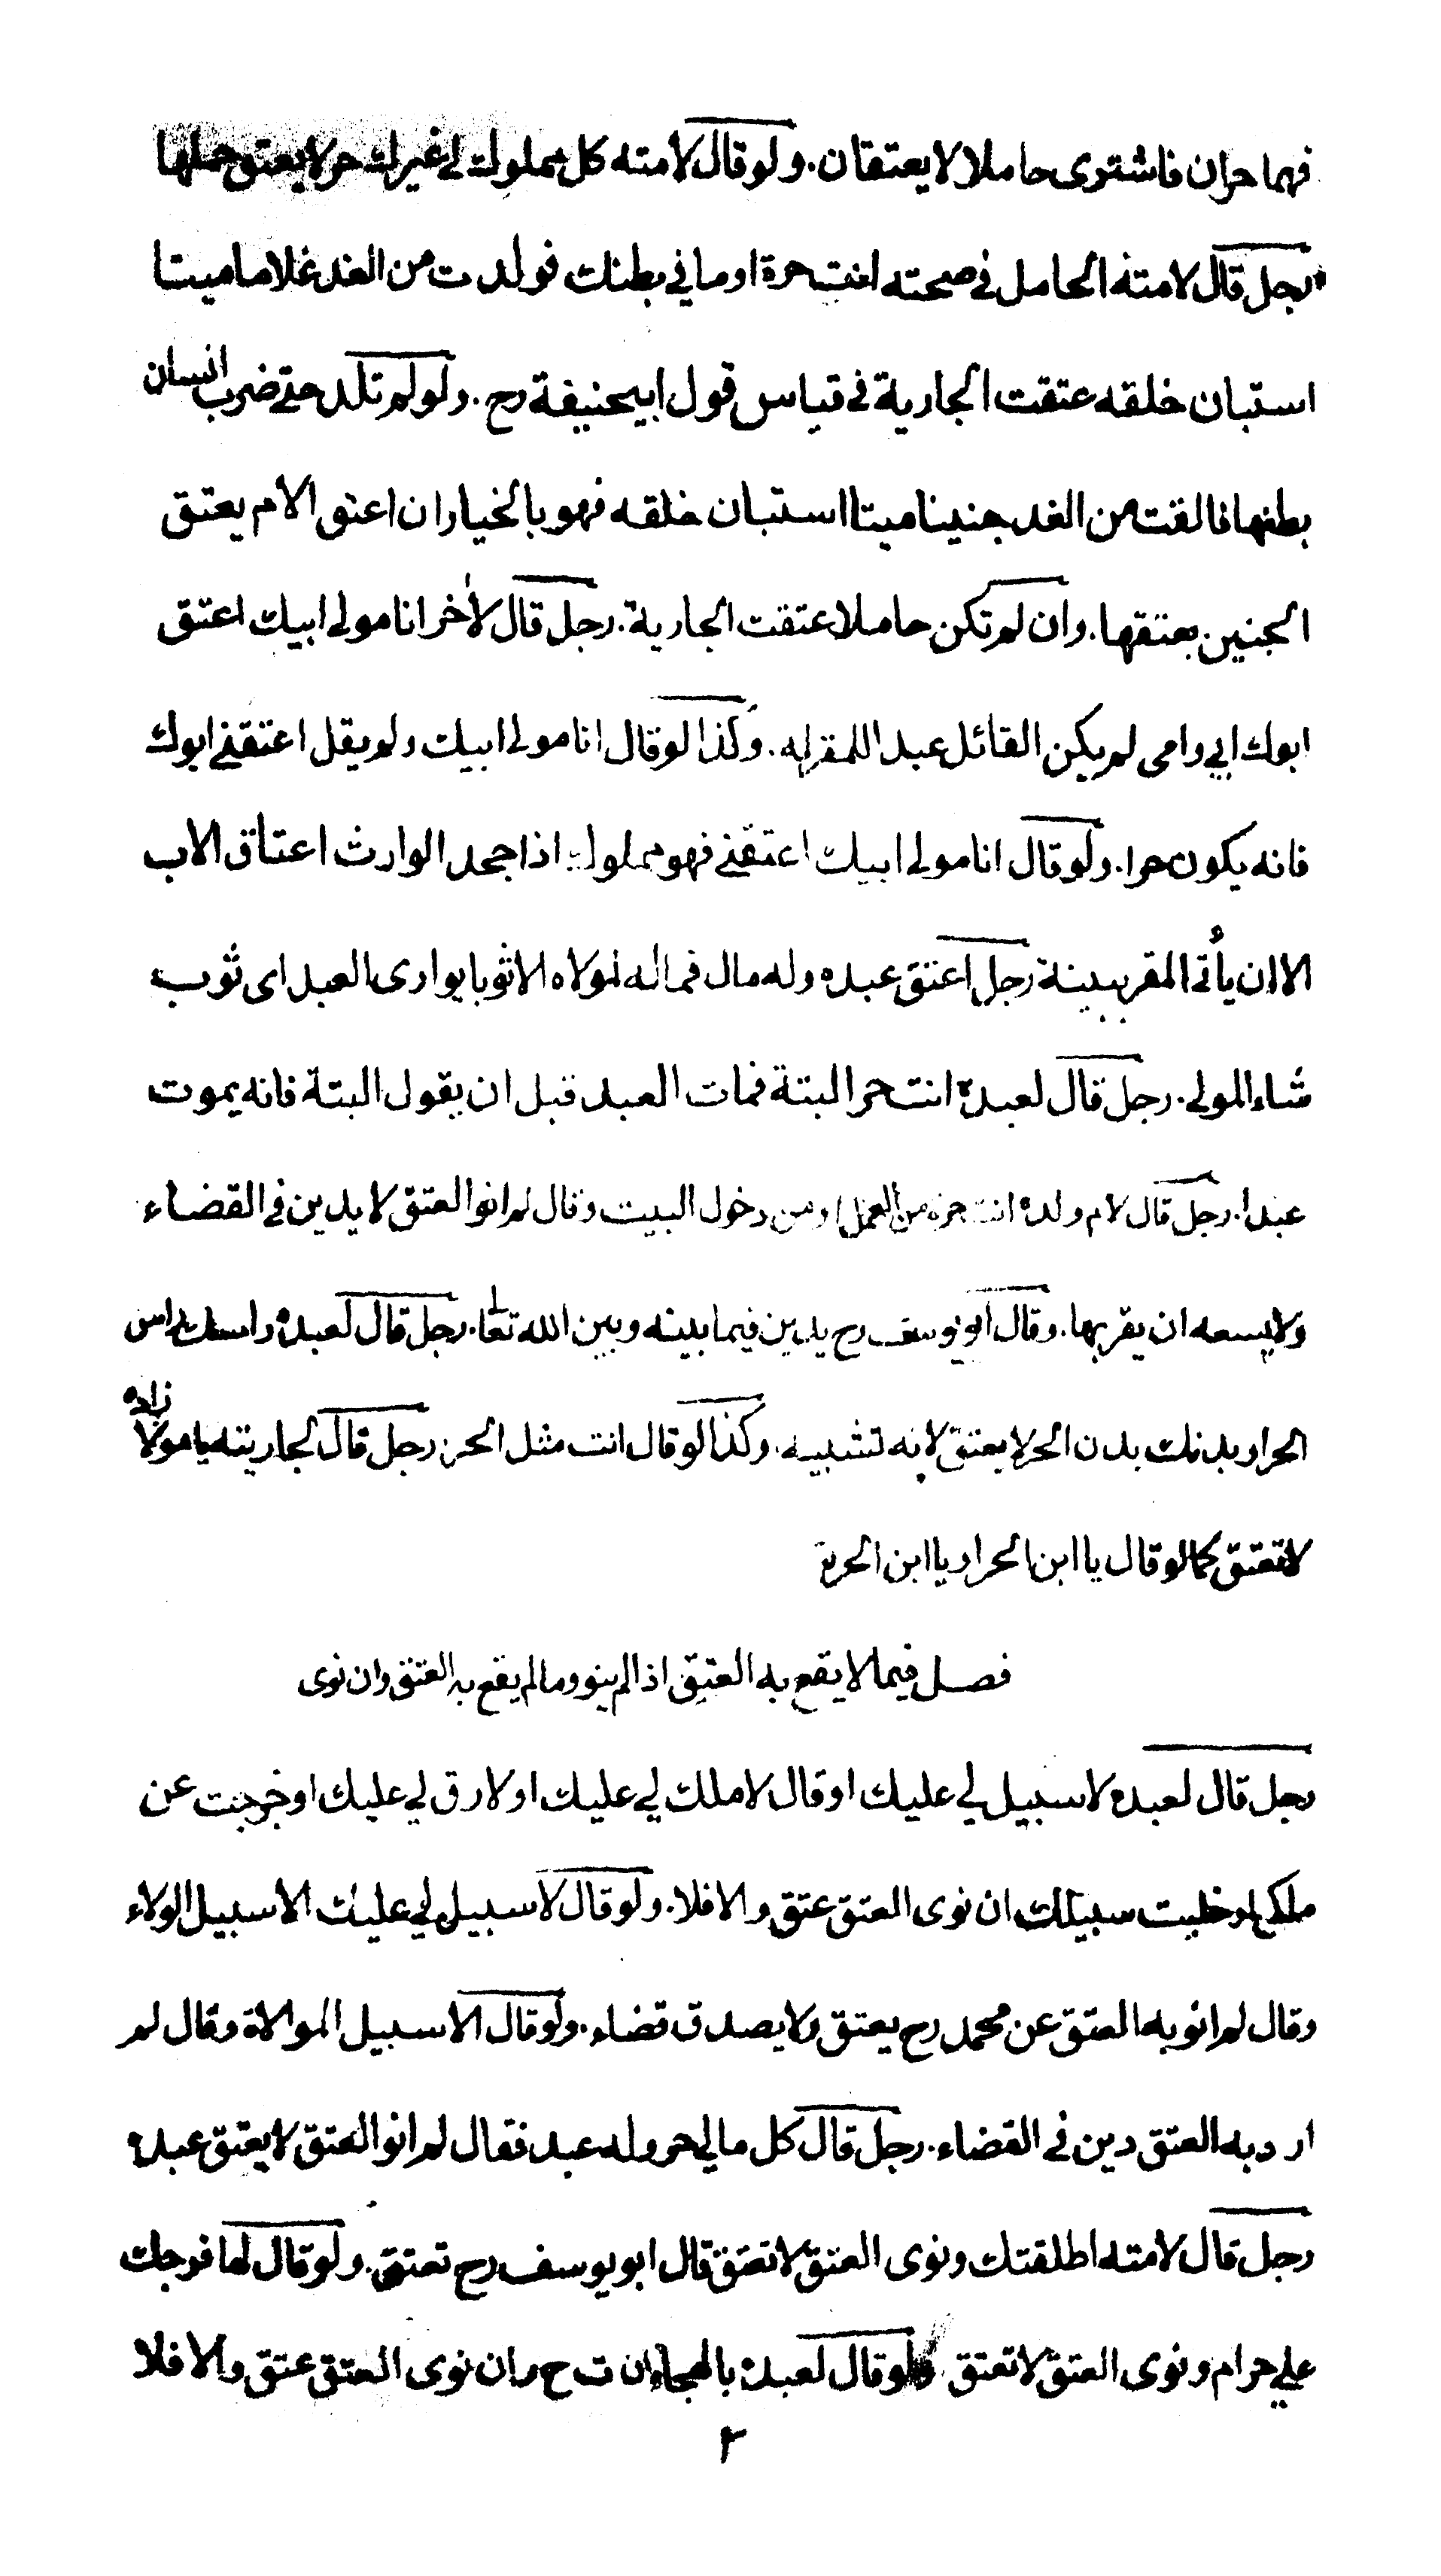 فهما حران فاشترى حاملا لا يعتقان. ولو قال لامته كل مملوك لي غيرك حر لا يعتق حملها
رجل قال لامته الحامل في صحته انت حرة او ما في بطنك فولدت من الغد غلاما ميتا
استبان خلقه عتقت الجارية في قياس قول ابيحنيفة رح. ولو لم تلد حتى ضرب انسان
بطنها فالقت من الغد جنينا ميتا استبان خلقه فهو بالخيار ان اعتق الام يعتق
الجنين بعتقها. وان لم تكن حاملا عتقت الجارية. رجل قال لأخر انا مولى ابيك اعتق
ابوك ابي وامي لم يكن القائل عبدا للمقر له. وكذا لو قال انا مولى ابيك ولم يقل اعتقني ابوك
فانه يكون حرا. ولو قال انا مولى ابيك اعتقني فهو مملوك اذا جحد الوارث اعتاق الاب
الا ان يأتي المقر ببينة رجل اعتق عبده وله مال فماله لمولاه الا ثوبا يوارى العبد اى ثوب
شاء المولى. رجل قال لعبده انت حر البتة فمات العبد قبل ان يقول البتة فانه يموت
عبدا. رجل قال لام ولده انت حرة من العمل او من دخول البيت وقال لم انو العتق لا يدين في القضاء
ولا يسعه ان يقربها. وقال ابو يوسف رح يدين فيما بينه وبين الله تعا. رجل قال لعبده راسك راس
الحر او بدنك بدن الحر لا يعتق لانه تشبيه. وكذا لو قال انت مثل الحر. رجل قال لجاريته يا مولا زاده
لا تعتق كما لو قال يا ابن الحر او يا ابن الحرة
فصل فيما لا يقع به العتق اذا لم ينو وما لم يقع به العتق وان نوى
رجل قال لعبده لا سبيل لي عليك او قال لا ملك لي عليك او لا رق لي عليك او خرجت عن
ملكي او خليت سبيلك ان نوى العتق عتق والا فلا. ولو قال لا سبيل لي عليك الا سبيل الولاء
وقال لم انو به العتق عن محمد رح يعتق ولا يصدق قضاء. ولو قال الا سبيل الموالاة وقال لم
ارد به العتق دين في القضاء. رجل قال كل مالي حر وله عبد فقال لم انو العتق لا يعتق عبده
رجل قال لامته اطلقتك ونوى العتق لا تعتق قال ابو يوسف رح تعتق. ولو قال لها فرجك
علي حرام ونوى العتق لا تعتق ولو قال لعبده بالهجاء ان ت ح ر ان نوى العتق عتق والا فلا
٢